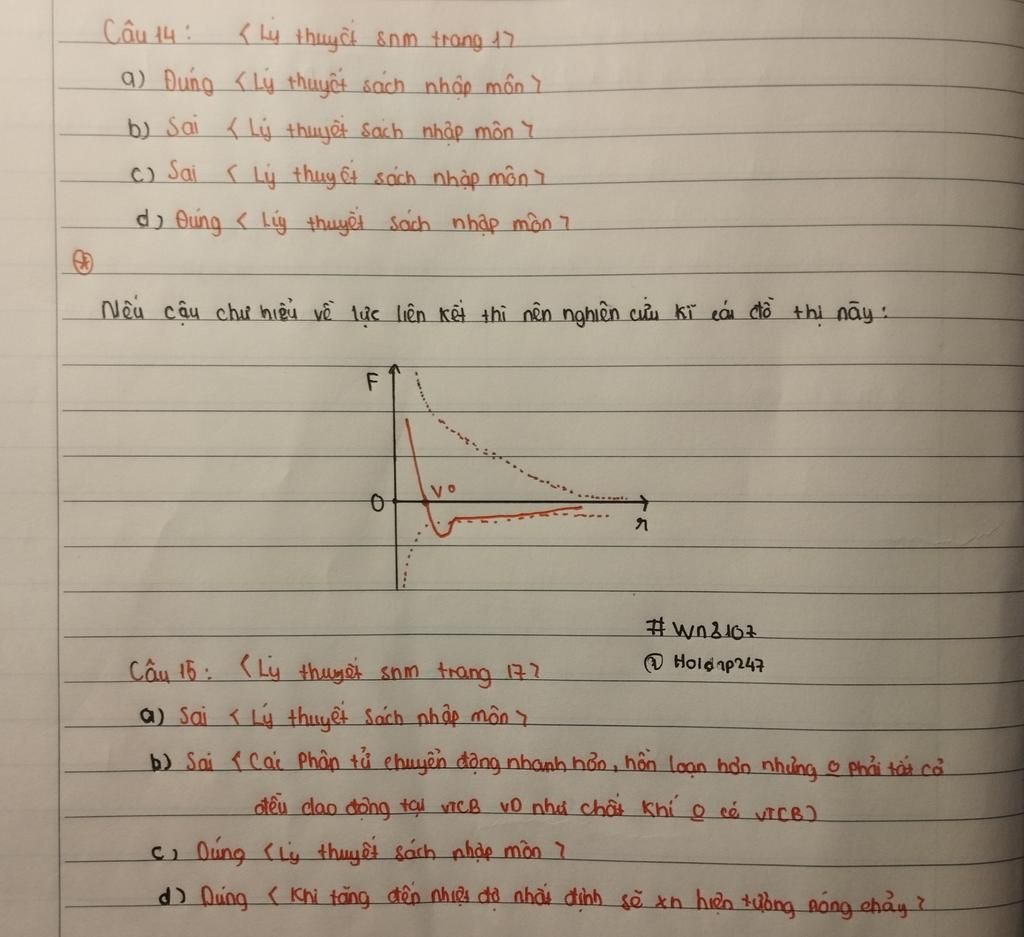 Câu 14: < Lý thuyết snm trang 17
a) Đúng < Lý thuyết sách nhập môn >
b) Sai < Lý thuyết sách nhập môn >
c) Sai < Lý thuyết sách nhập môn >
d) Đúng < Lý thuyết sách nhập môn >
Nếu cậu chư hiểu về lực liên kết thì nên nghiên cứu kĩ cái đồ thị này:
F
v0
O
r
#Wn8107
Câu 15: < Lý thuyết snm trang 17 >
a) Sai < Lý thuyết sách nhập môn >
b) Sai < Các phân tử chuyển động nhanh hơn, hỗn loạn hơn nhưng o phải tất cả
đều dao động tại VTCB VD như chất khí o có VTCB)
c) Đúng < Lý thuyết sách nhập môn >
d) Đúng < Khi tăng đến nhiệt độ nhất định sẽ xn hiện tượng nóng chảy >